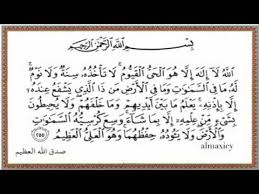 بِسْمِ اللَّهِ الرَّحْمَٰنِ الرَّحِيمِ
اللَّهُ لَا إِلَٰهَ إِلَّا هُوَ الْحَيُّ الْقَيُّومُ لَا تَأْخُذُهُ سِنَةٌ وَلَا نَوْمٌ
لَهُ مَا فِي السَّمَاوَاتِ وَمَا فِي الْأَرْضِ مَنْ ذَا الَّذِي يَشْفَعُ عِنْدَهُ
إِلَّا بِإِذْنِهِ يَعْلَمُ مَا بَيْنَ أَيْدِيهِمْ وَمَا خَلْفَهُمْ وَلَا يُحِيطُونَ
بِشَيْءٍ مِنْ عِلْمِهِ إِلَّا بِمَا شَاءَ وَسِعَ كُرْسِيُّهُ السَّمَاوَاتِ
وَالْأَرْضَ وَلَا يَئُودُهُ حِفْظُهُمَا وَهُوَ الْعَلِيُّ الْعَظِيمُ ٢٥٥
صدق الله العظيم
almaxicy